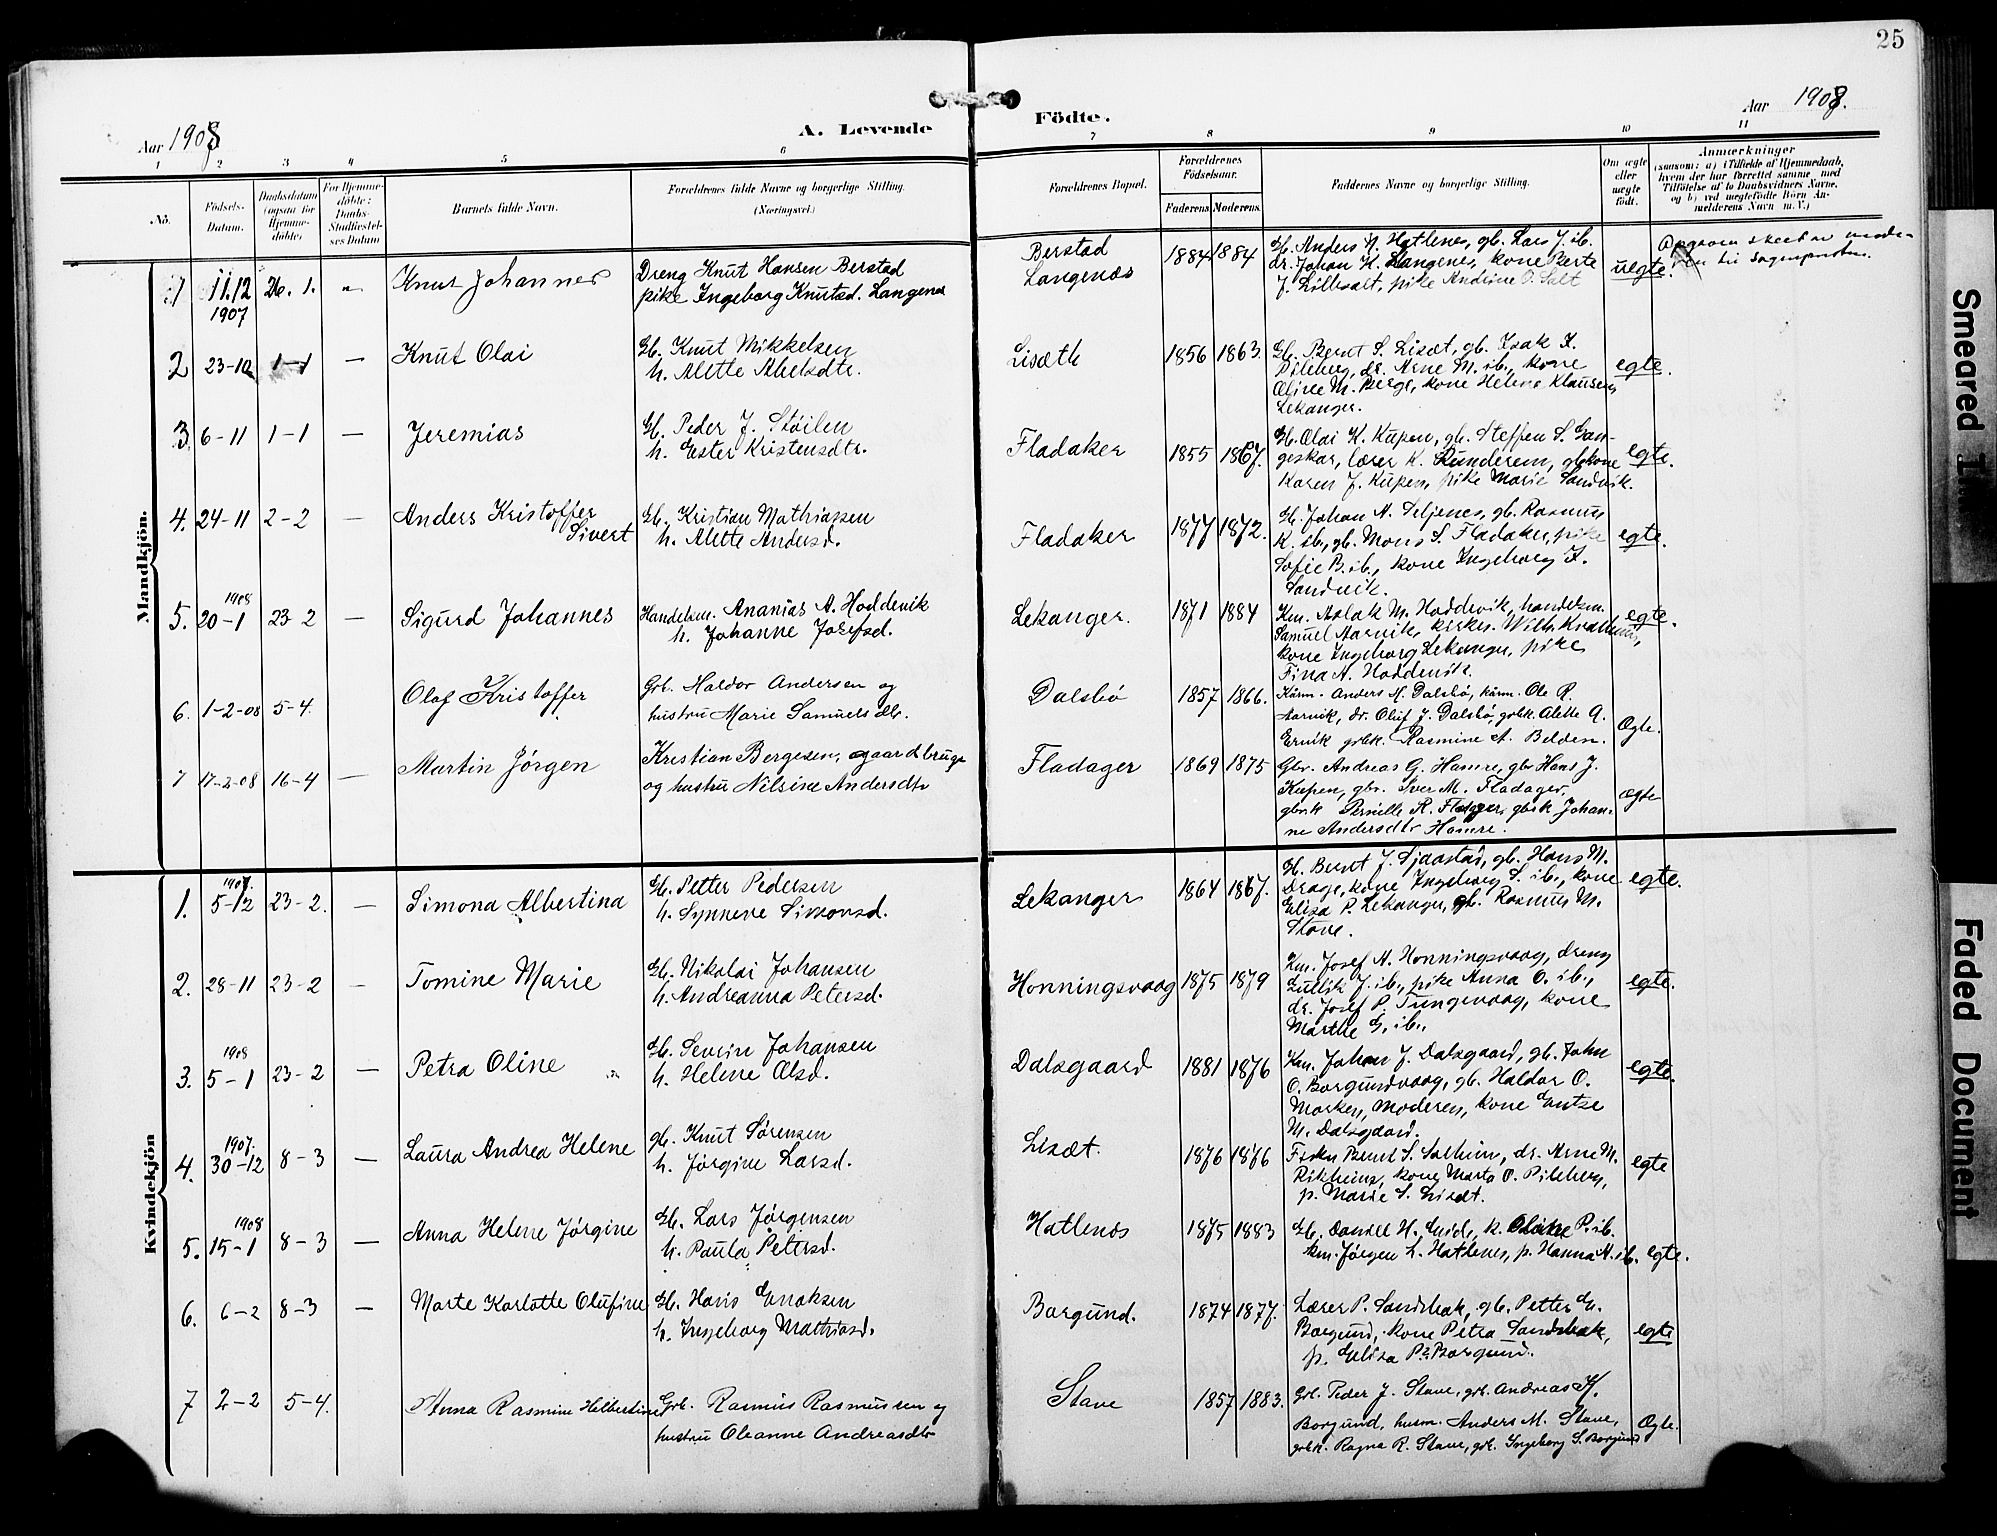 25
Aar 1908
A. Levende
Födte.
Aar 1908.
1 2 3 4 5 6 7 8 9 10 11
No.
Födsels-
Datum.
Daabsdatum
(ogsaa for
Hjemme-
döbte)
For Hjemme-
döbte:
Daabs-
Stadfæstel-
ses Datum
Barnets fulde Navn.
Forældrenes fulde Navne og borgerlige Stilling.
(Næringsvei.)
Forældrenes Bopæl.
Forældrenes
Födselsaar.
Faderens. Moderens.
Faddernes Navne og borgerlige Stilling.
Om ægte
eller
uægte
födt.
Anmærkninger
(saasom: a) i Tilfælde af Hjemmedaab,
hvem der har forrettet samme, med
Tilföielse af to Daabsvidners Navne,
og b) ved uægtefödte Börn An-
melderens Navn m. V.)
Mandkjön.
1 11.12 1907 26. 1. Knut Johannes
Dreng Knut Hansen Berstad
pike Ingeborg Knutsd. Langenes
Berstad
Langenæs
1884 1884
Gb. Anders N. Hatlenes, gb. Lars J. ib.
dr. Johan K. Langenes, kone Berte
J. Lillesalt, pike Andrine O. Salt
uegte.
2 23-10 1-1 — Knut Olai
Gb. Knut Mikkelsen
h. Alette Abelsdtr.
Lisæth
1856 1863.
Gb. Bernt S. Lisæt, gb. Isak I.
Pileberg, dr. Arne M. ib., kone
Oline M. Berge, kone Helene Klausen,
Lekanger.
egte.
3. 6-11 1-1 — Jeremias
Gb. Peder J. Støilen
h. Ester Kristensdtr.
Fladaker
1855 1867.
Gb. Olai K. Kupen, gb. Steffen S. Gan-
geskar, lærer K. Runderem, gbkone
Karen J. Kupen, pike Marie Sandvik.
egte.
4. 24-11 2-2 — Anders Kristoffer
Sivert
Gb. Kristian Mathiassen
h. Alette Andersd.
Fladaker
1877 1872.
Gb. Johan A. Seljenes, gb. Rasmus
K. ib., gb. Mons S. Fladaker, pike
Sofie B. ib., kone Ingeborg I.
Sandvik.
egte.
5. 1908 20-1 23-2 — Sigurd Johannes
Handelsm. Ananias A. Hoddevik
h. Johanne Josefsd.
Lekanger.
1871 1884
Km. Aslak M. Hoddevik, handelsm.
Samuel Aarvik, kirkes.
kone Ingeborg Lekanger, pike
Fina A. Hoddevik.
egte.
6. 1-2-08 5-4. Olaf Kristoffer
Grb. Haldor Andersen og
hustru Marie Samuelsdtr.
Dalsbø
1857 1866.
Kårm. Anders M. Dalsbø, kårm. Ole R.
Aarvik, dr. Oluf J. Dalsbø, grbk. Alette A.
Ervik grbk. Rasmine A. Belden.
Ægte.
7 17-2-08 16-4 — Martin Jørgen
Kristian Bergesen, gaardbruger
og hustru Nilsine Andersdtr
Fladager
1869 1875
Gbr. Andreas G. Hamre, gbr Hans J.
Kupen, gbr. Iver M. Fladager,
gbrk Pernille K. Fladager, gbrk Johan-
ne Andersdtr Hamre.
ægte
Kvindekjön
1. 1907. 5-12 23-2. — Simona Albertina
Gb. Petter Pedersen
h. Synneve Simonsd.
Lekanger
1864 1867.
Gb. Bernt J. Sjaastad, gb. Hans M.
Drage, kone Ingeborg S. ib., kone
Elisa P. Lekanger, gb. Rasmus M.
Stave.
egte.
2. 28-11 23-2 — Tomine Marie
Gb. Nikolai Johansen
h. Andreanna Petersd.
Honningsvaag
1875 1879
Km. Josef A. Honningsvaag, dreng
J. ib., pike Anna O. ib.,
dr. Josef P. Tungevaag, kone
Marthe G. ib.,
egte.
3. 1908 5-1 23-2 — Petra Oline
Gb. Severin Johansen
h. Helene Olsd.
Dalsgaard
1881 1876
Km. Johan J. Dalsgaard, gb. John
O. Borgundvaag, gb. Haldor O.
Morken, Moderen, kone Entse
M. Dalsgaard.
egte.
4. 1907. 30-12 8-3 — Laura Andrea Helene
gb. Knut Sørensen
h. Jørgine Larsd.
Lisæt.
1876 1876
Fisker Bernt S. Solheim, dr. Arne M.
Rikheim, kone Marta O. Pileberg,
p. Marie S. Lisæt.
egte
5. 1908 15-1 8-3 — Anna Helene Jørgine
Gb. Lars Jørgensen
h. Paula Petersd.
Hatlenæs
1875 1883
Gb. Daniel H. Eide, k. Oline P. ib.
km. Jørgen L. Hatlenes, p. Hanna N. ib.
egte.
6. 6-2 8-3 — Marte Karlotte Olufine
Gb. Hans Enoksen
h. Ingeborg Mathiasd.
Borgund.
1874 1877.
Lærer P. Sandsbak, gb. Petter E.
Borgund, kone Petra Sandsbak,
p. Elisa P. Borgund.
egte
7 2-2 5-4. Anna Rasmine Helbertine
Grb. Rasmus Rasmussen og
hustru Oleanne Andreasdtr
Stave
1857 1883.
Grb. Peder J. Stave, grb. Andreas H.
Borgund, husm. Anders M. Stave,
grbk. Ragna R. Stave, grb. Ingeborg S. Borgund
Ægte.
Faded Document